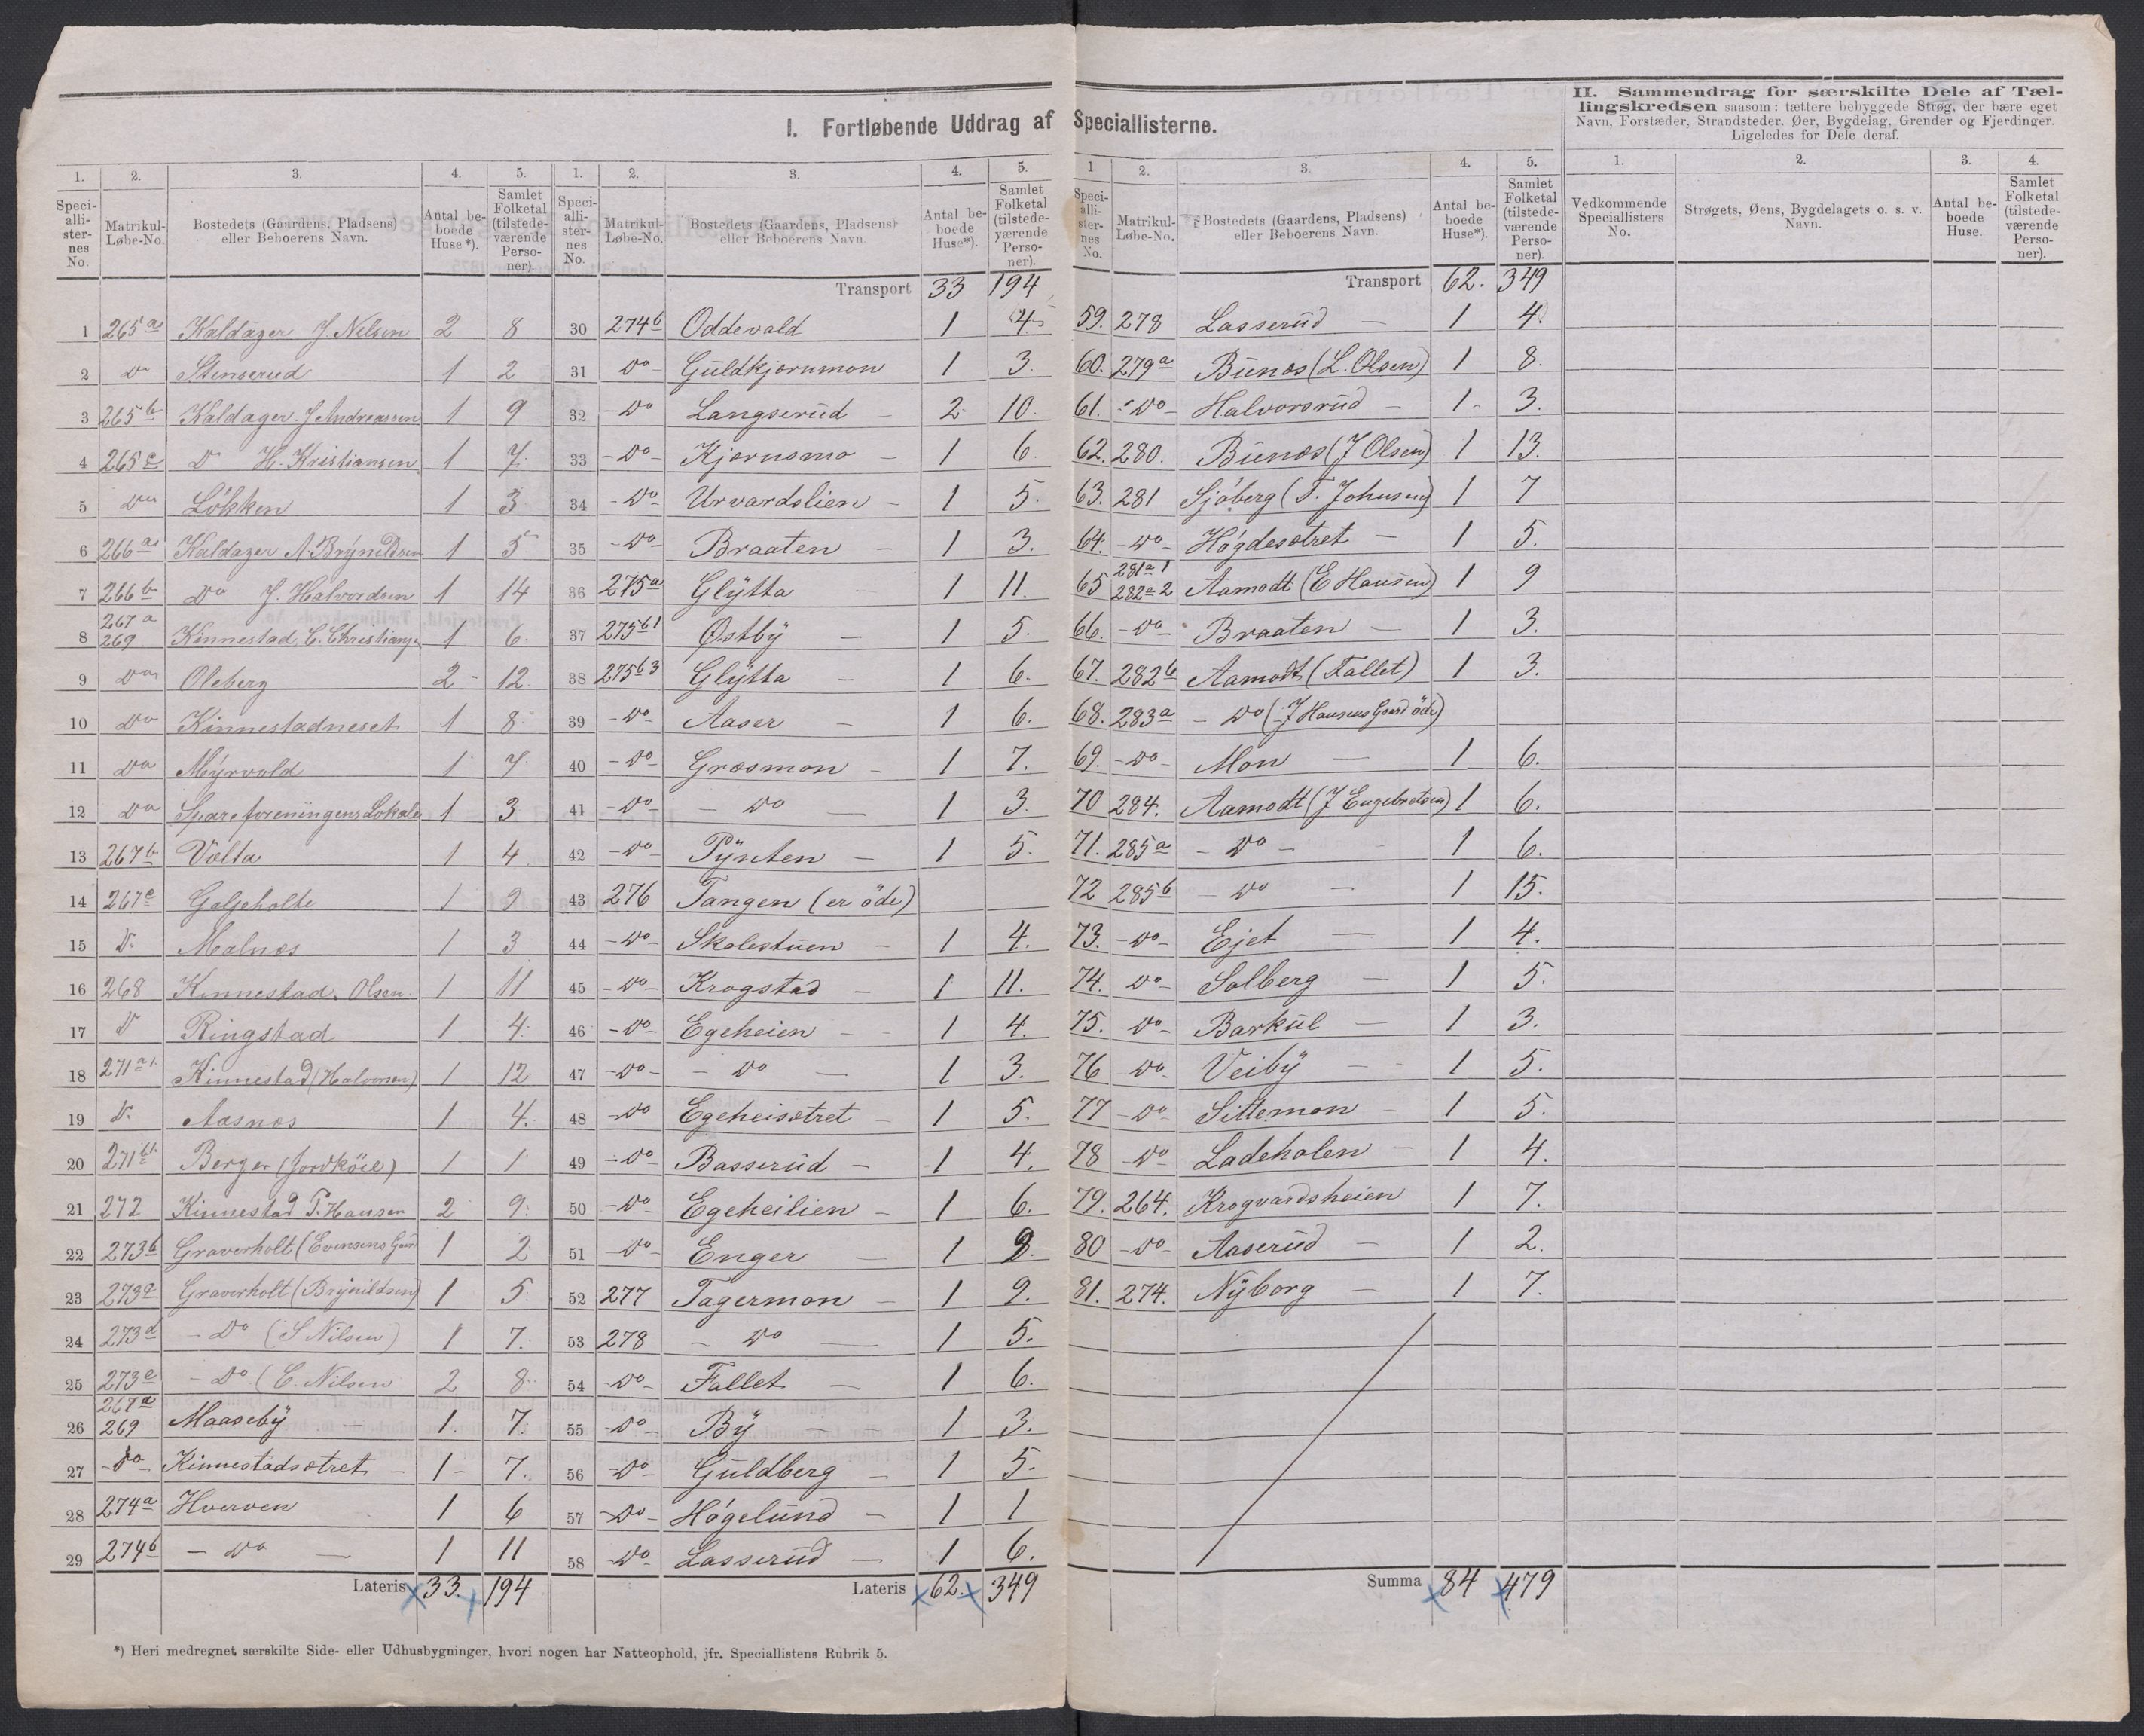 I. Fortløbende Uddrag af Speciallisterne.
II. Sammendrag for særskilte Dele af Tæl-
lingskredsen saasom: tættere bebyggede Strøg, der bære eget
Navn, Forstæder, Strandsteder, Øer, Bygdelag, Grender og Fjerdinger.
Ligeledes for Dele deraf.
1. 2. 3. 4. 5.
Speci-alli-ster-nes No. Matrikul-Løbe-No. Bostedets (Gaardens, Pladsens) eller Beboerens Navn. Antal be-boede Huse*). Samlet Folketal (tilstede-værende Perso-ner).
1 265a Kaldager J. Nelsen 2 8
2 Do Stenserud 1 2
3 265b Kaldager J Andreassen 1 9
4 265c Do H. Kristiansen 1 7.
5 Do Løkken 1 3
6 266a Kaldager A. Brynildsen 1 5
7 266b Do J. Halvordsen 1 14
8 267a 269 Kinnestad C. Christians 1 6.
9 Do Oleberg 2 12.
10 Do Kinnestadneset 1 8.
11 Do Myrvold 1 7.
12 Do Spareforeningens Lokale 1 3
13 267b Volta 1 4
14 267c Galgeholte 1 9
15 D. Malnæs 1 3
16 268 Kinnestad. Olsen. 1 11
17 D Ringstad 1 4.
18 271a1 Kinnestad (Halvorsen) 1 12
19 D. Aasnæs 1 4.
20 271b1 Berger (Jordköie) 1 1
21 272 Kinnestad P. Hansen 2 9.
22 273b Graverholt (Evensens Gaard 1 2
23 273c Graverholt (Brynildsen) 1 5.
24 273d - Do (S Nilsen) 1 7.
25 273e - Do (C. Nilsen 2 8.
26 267a 269 Maaseby 1. 7.
27 - Do - Kinnestadsætret 1 7.
28 274a Hverven 1 6
29 274b - Do - 1 11
Lateris 33. 194
1. 2. 3. 4. 5.
Speci-alli-ster-nes No. Matrikul-Løbe-No. Bostedets (Gaardens, Pladsens) eller Beboerens Navn. Antal be-boede Huse*). Samlet Folketal (tilstede-værende Perso-ner).
Transport 33 194
30 274b Oddevald 1 4
31 Do Guldkjærnmon 1 3.
32 - Do Langserud 2 10.
33 - Do - Kjærnsmo 1 6
34 - Do Urvardslien 1 5.
35 - Do - Braaten 1 3.
36 275a Glytta 1 11.
37 275b1 Østby 1 5.
38 275b3 Glytta 1 6.
39 - Do - Aaser 1 6.
40 - Do - Græsmon 1 7.
41 - Do - - Do 1 3.
42 - Do Pynten 1 5.
43 276 Tangen (er öde)
44 - Do - Skolestuen 1 4.
45 - Do - Krogstad 1 11.
46 - Do - Egeheien 1 4.
47 - Do - - Do 1 3.
48 - Do Egeheisætret 1 5.
49 - Do Basserud 1 4.
50 - Do Egeheilien 1 6.
51 - Do Enger 1 2.
52 277 Tagermon 1 9.
53 278 - Do 1 5.
54 - Do - Fallet 1 6.
55 - Do - By 1 3.
56 - Do - Guldberg 1 5.
57 - Do - Høgelund 1 1
58 - Do - Lasserud 1 6.
Lateris 62. 349
1 2. 3. 4. 5.
Speci-alli-ster-nes No. Matrikul-Løbe-No. Bostedets (Gaardens, Pladsens) eller Beboerens Navn. Antal be-boede Huse*). Samlet Folketal (tilstede-værende Perso-ner).
Transport 62. 349
59. 278 Lasserud 1 4.
60. 279a Bunæs (L. Olsen) 1 8.
61. - Do - Halvorsrud 1 3.
62. 280. Bunæs (J Olsen) 1 13.
63. 281 Sjøberg (T. Johnsen) 1 7
64. - Do - Høgdesætret 1 5.
65 281a1 282a2 Aamodt (E Hansen) 1 9
66. - Do Braaten 1 3.
67. 282b Aamodt (Fallet) 1 3.
68. 283a - Do (J Hansens Gaard öde)
69. - Do - Mon 1 6.
70 284. Aamodt (J Engebretsen) 1 6.
71. 285a - Do - 1 6.
72 285b - Do - 1 15.
73. - Do - Ejet 1 4.
74. Do - Solberg 1 5.
75. Do - Barkul 1 3.
76 Do - Veiby 1 5.
77 - Do - Sittemon 1 5.
78 - Do - Ladeholen 1 4.
79. 264. Krogvardsheien 1 7.
80 - Do - Aaserud 1 2.
81. 274. Nyborg 1 7.
Summa 84 479
1. 2. 3. 4.
Vedkommende Speciallisters No. Strøgets, Øens, Bygdelagets o. s. v. Navn. Antal be-boede Huse. Samlet Folketal (tilstede-værende Perso-ner).
*) Heri medregnet særskilte Side- eller Udhusbygninger, hvori nogen har Natteophold, jfr. Speciallistens Rubrik 5.